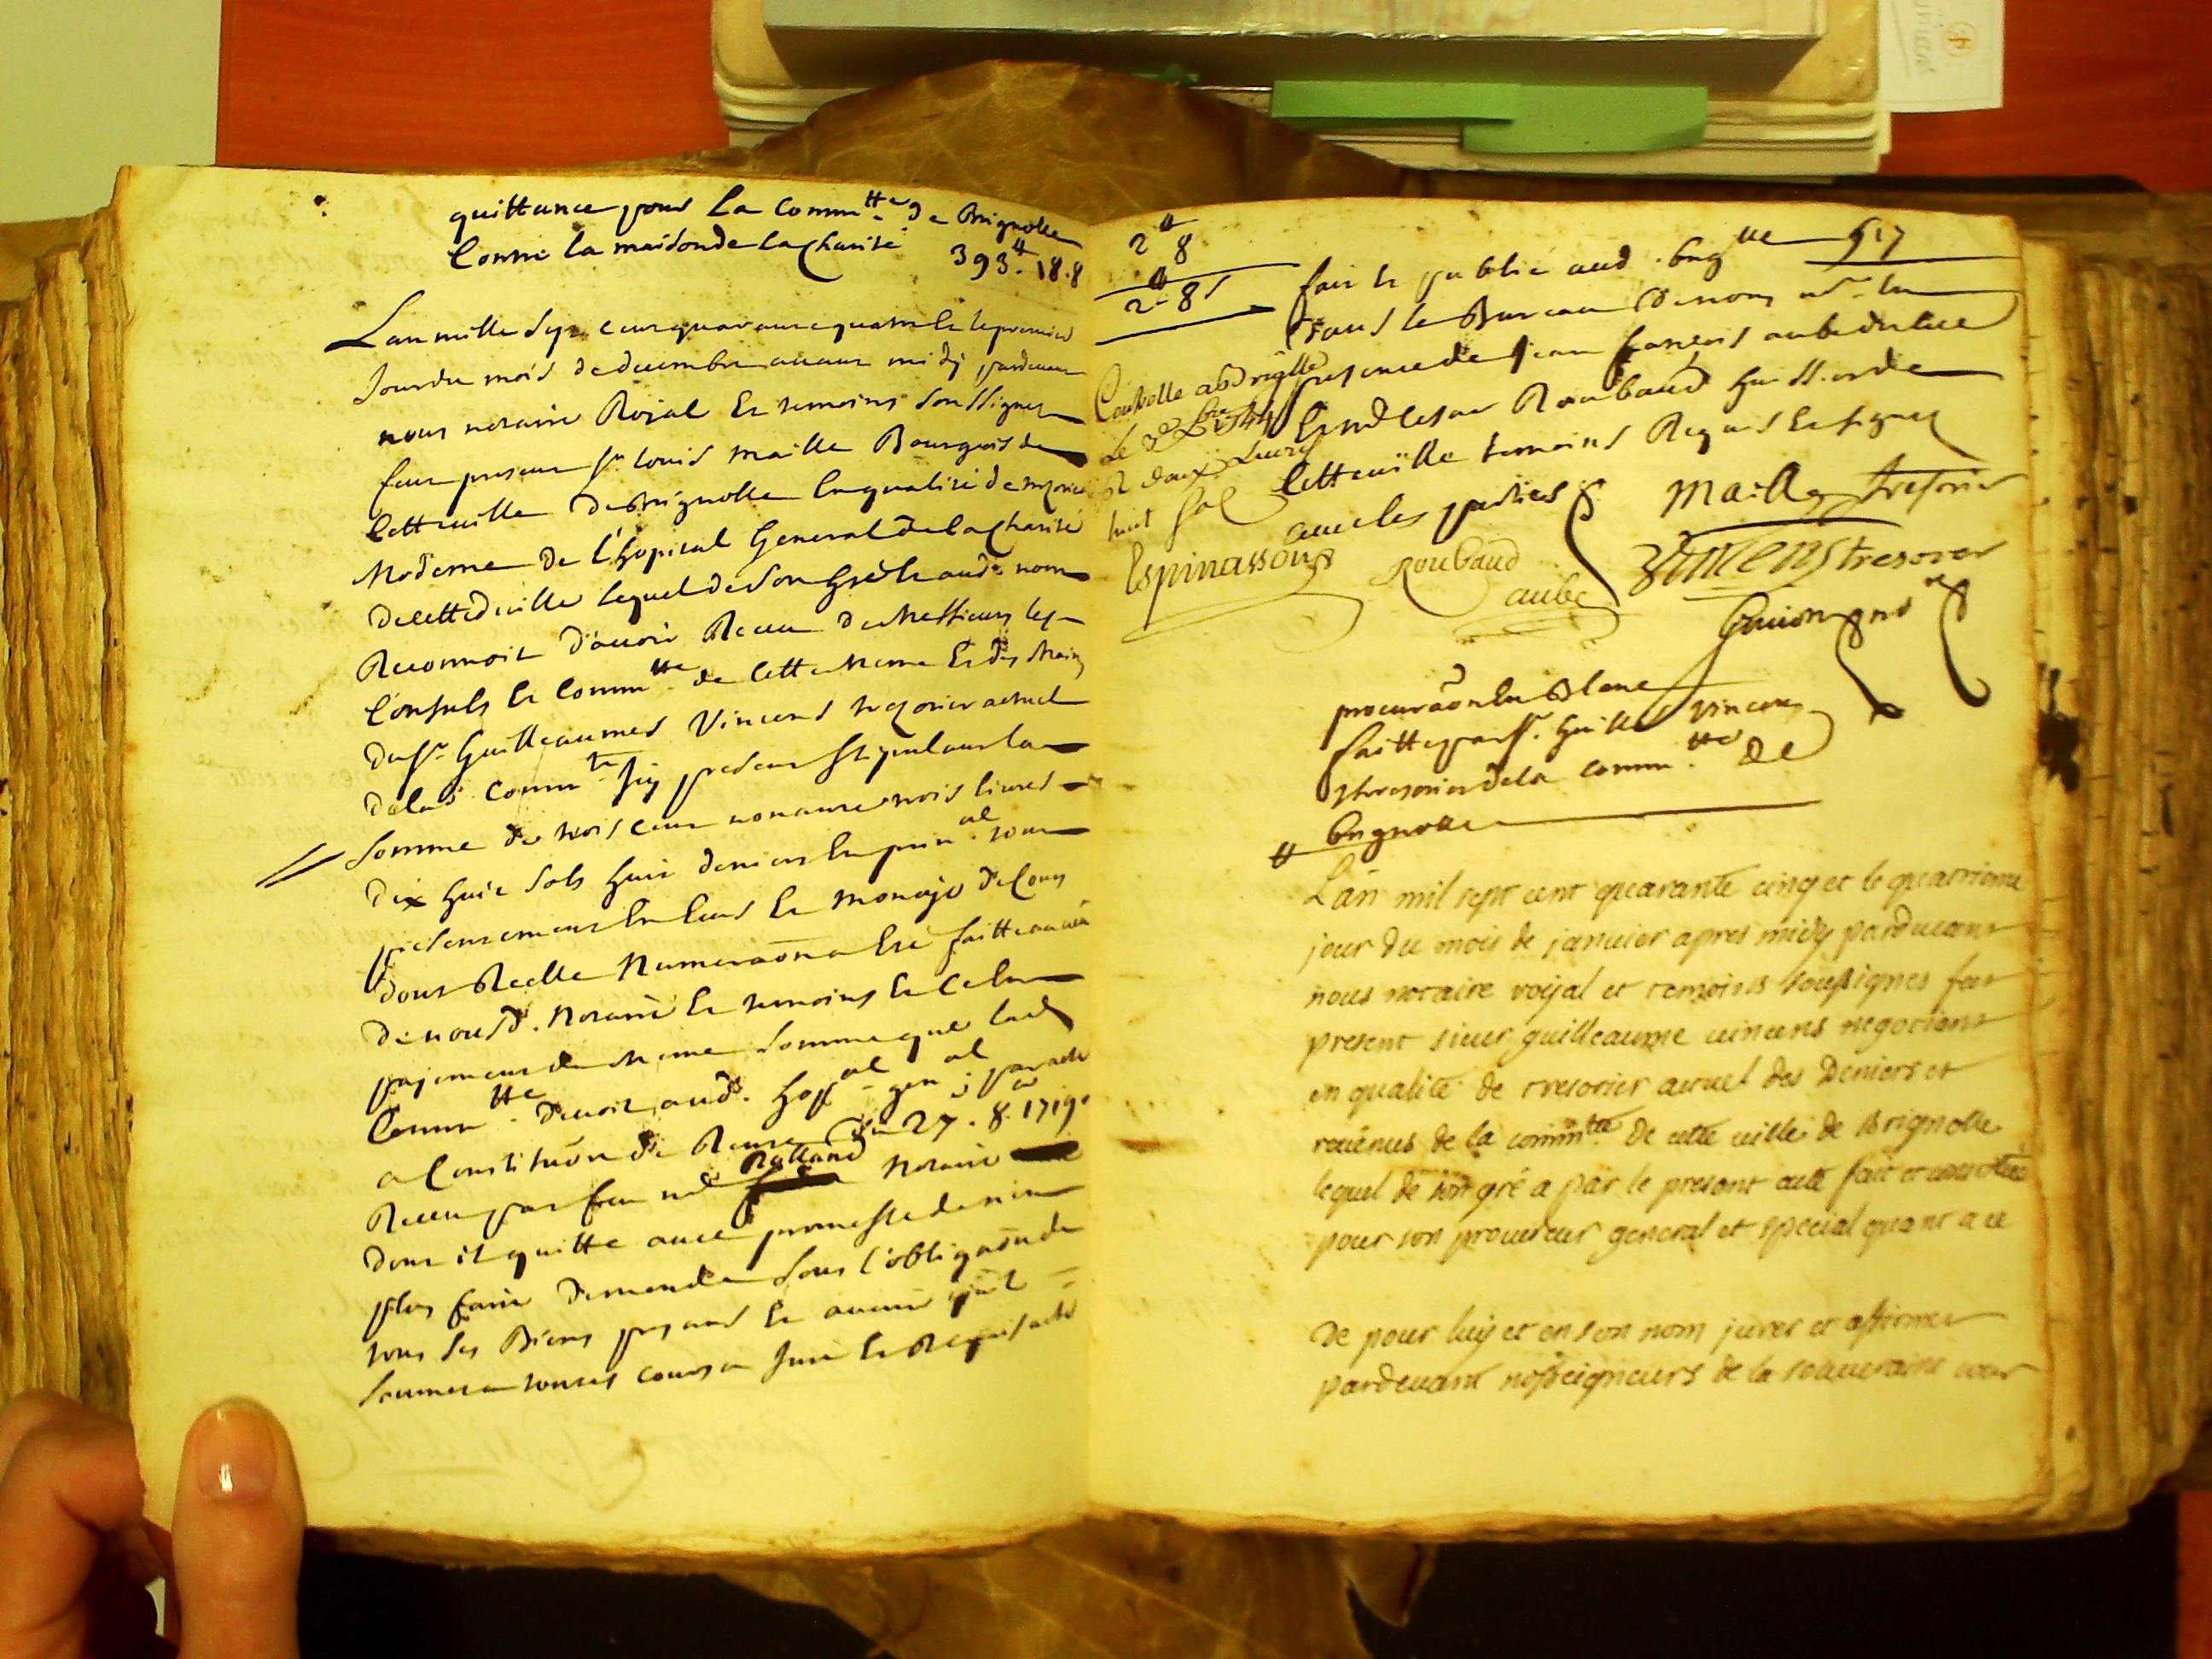 quittance pour La Comm.tte de Brignolle
Contre la maison de la Charité 393.tt 18.8
L'an mille sept cens quarante quatre Et le premier
Jour du mois de decembre avant midy pardevant
nous notaire Roial Et temoins soussignez
feut present sr. Louis Maille Bourgois de
Cette ville de Brignolle En qualité de trezorier
Moderne de l'hopital General de la Charité
de cettedville lequel de son gré Et aud. nom
Reconnoit d'avoir Receu de Messieurs les
Consuls Et Comm.tte de Cette Meme Et des Mains
du sr. Guilleaumes Vincens trezorier actuel
de lad. Comm.te Jcy present stipulant la
somme de trois cent nonante trois livres
dix huit sols huit deniers En prin.al tout
presentement En Ecus Et monoye de Cours
dont Reelle Numeraõn a Eté faitte au veu
de nousd. Notaire Et temoins Et C'e En
payement de Meme somme que lad.
Comm.tte devoit aud. hop.al gen.al par acte
a Constitutiõn de Rente du 27. 8.re 1719.
Receu par feu me Rolland Notaire
dont il quitte avec promesse de rien
plus faire demande sous l'obligaõn de
tous ses Biens presans Et avenir qu'il
soumet a touttes cours a Juré Et Requis acte
2.tt 8
2.tt 8 s
917
fait Et publié aud. brig.lle
dans le Bureau de nous nre. En
presence de Jean françois aube
Et Cesar Roubaud huissier de
Cette ville temoins Requis Et signez
avec les parties
Controllé a brignolle
Le 1744
R deux Livres
huit sol
Espinassous
Maille tresorier
Vincens tresorer
Roubaud
aube
Guion nore
procuraõn En Blanc
faitte par sr. Guill.e Vincens
thresorier de la Comm.tte de
brignolle
L'an mil sept cent quarante cinq et le quatrieme
jour du mois de janvier apres midy pardevant
nous notaire royal et temoins soussignes fut
present sieur guilleaume vincens negotiant
en qualité de tresorier actuel des deniers et
revenus de la comm.tté De cette ville de Brignolle
lequel de son gré a par le presant acte fait et constitué
pour son procureur general et special quant a ce
De pour luy et en son nom jurer et affirmer
pardevant nosseigneurs de la souveraine cour